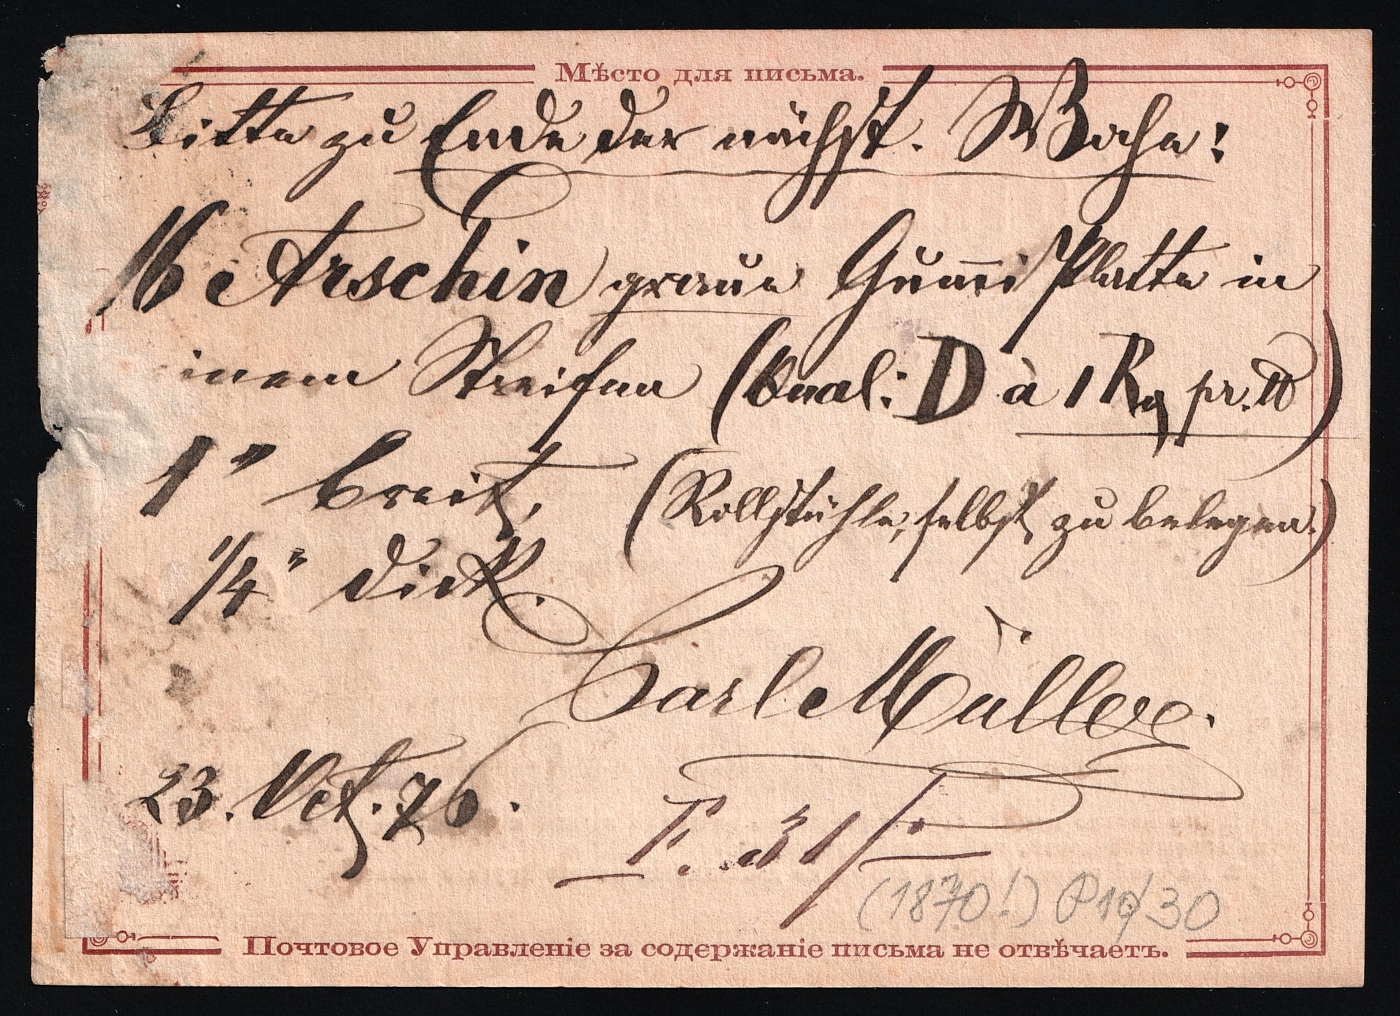 Мѣсто для письма.
Bitte zu Ende der nächst. Woche!
16 Arschin graue Gummi Platte in
einem Streifen (Qual: D à 1 R pr. ℔)
1" breit, (Rollstühle, selbst zu belegen.)
1/4" dick.
Carl Müller.
23. Oct. 76.
31/
(1870!) P 19/30
Почтовое Управленіе за содержаніе письма не отвѣчаетъ.